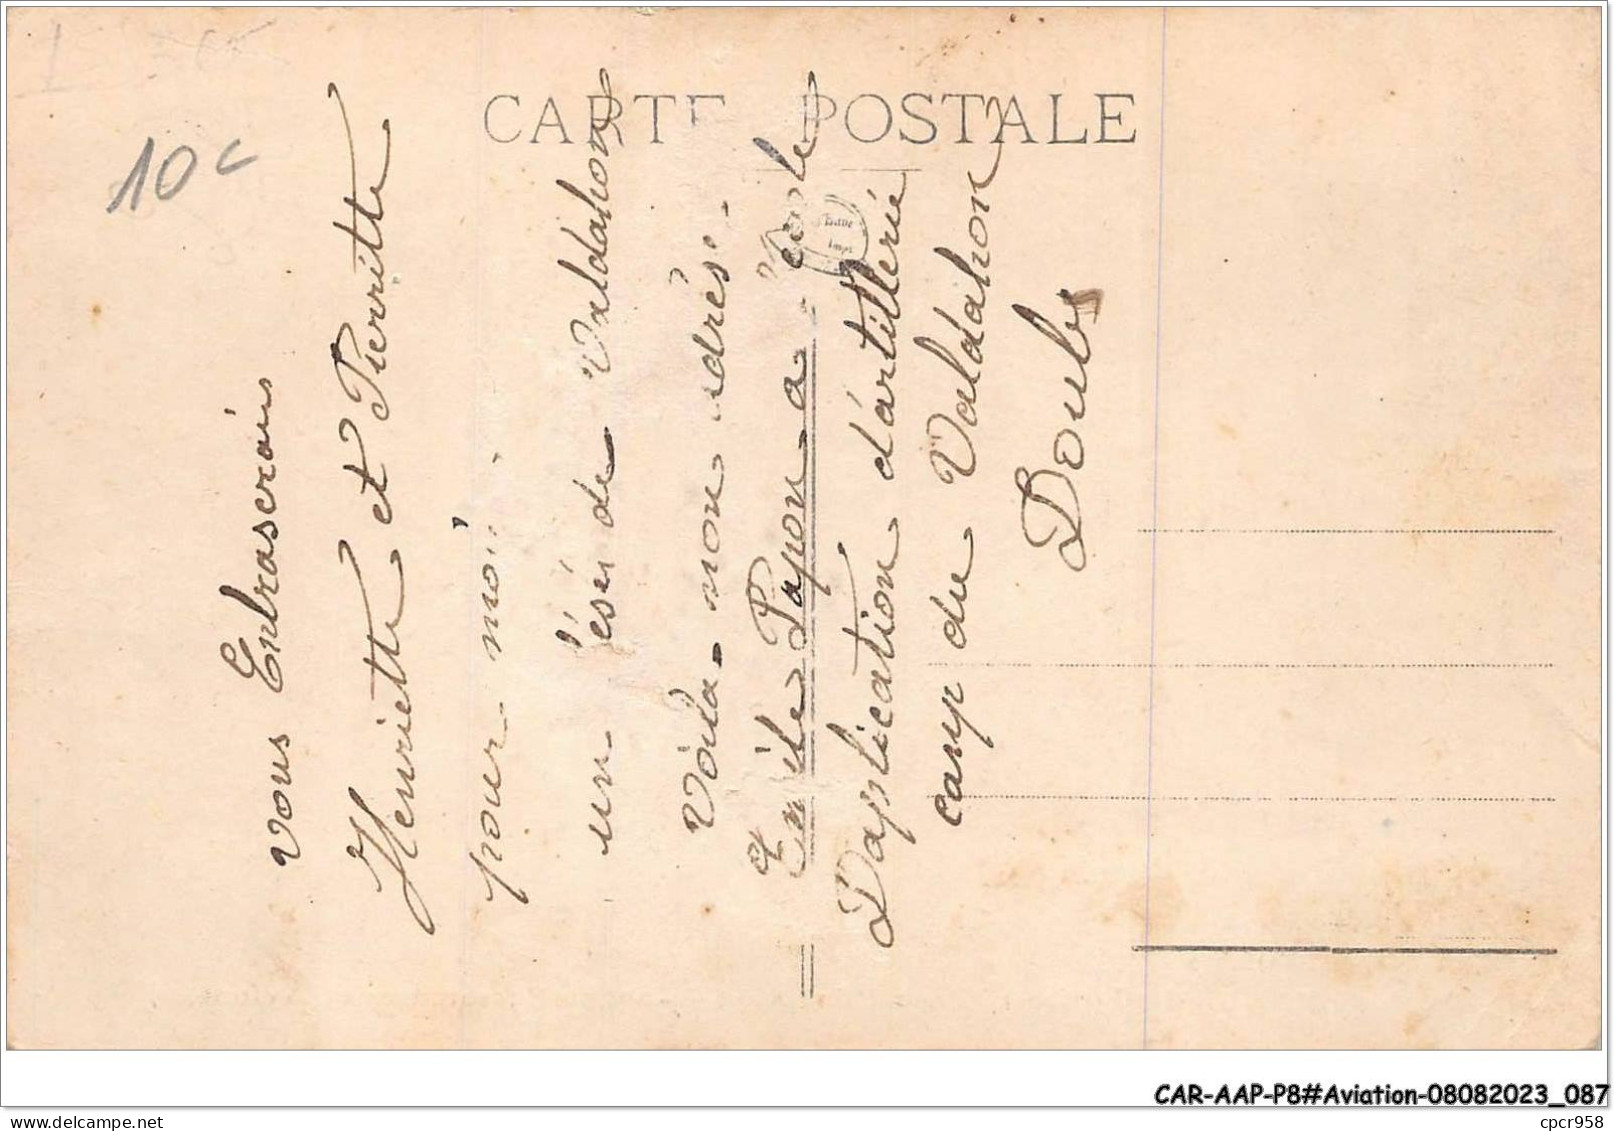 CARTE POSTALE
10c
vous Enbraserais
Henriette et Pierrette
pour moi
un de Valdahon
Voila mon adrés
Emile Papon a école
Daplication d'artillerie
camp du Valdahon
Doubs
CAR-AAP-P8#Aviation-08082023_087
cpcr958